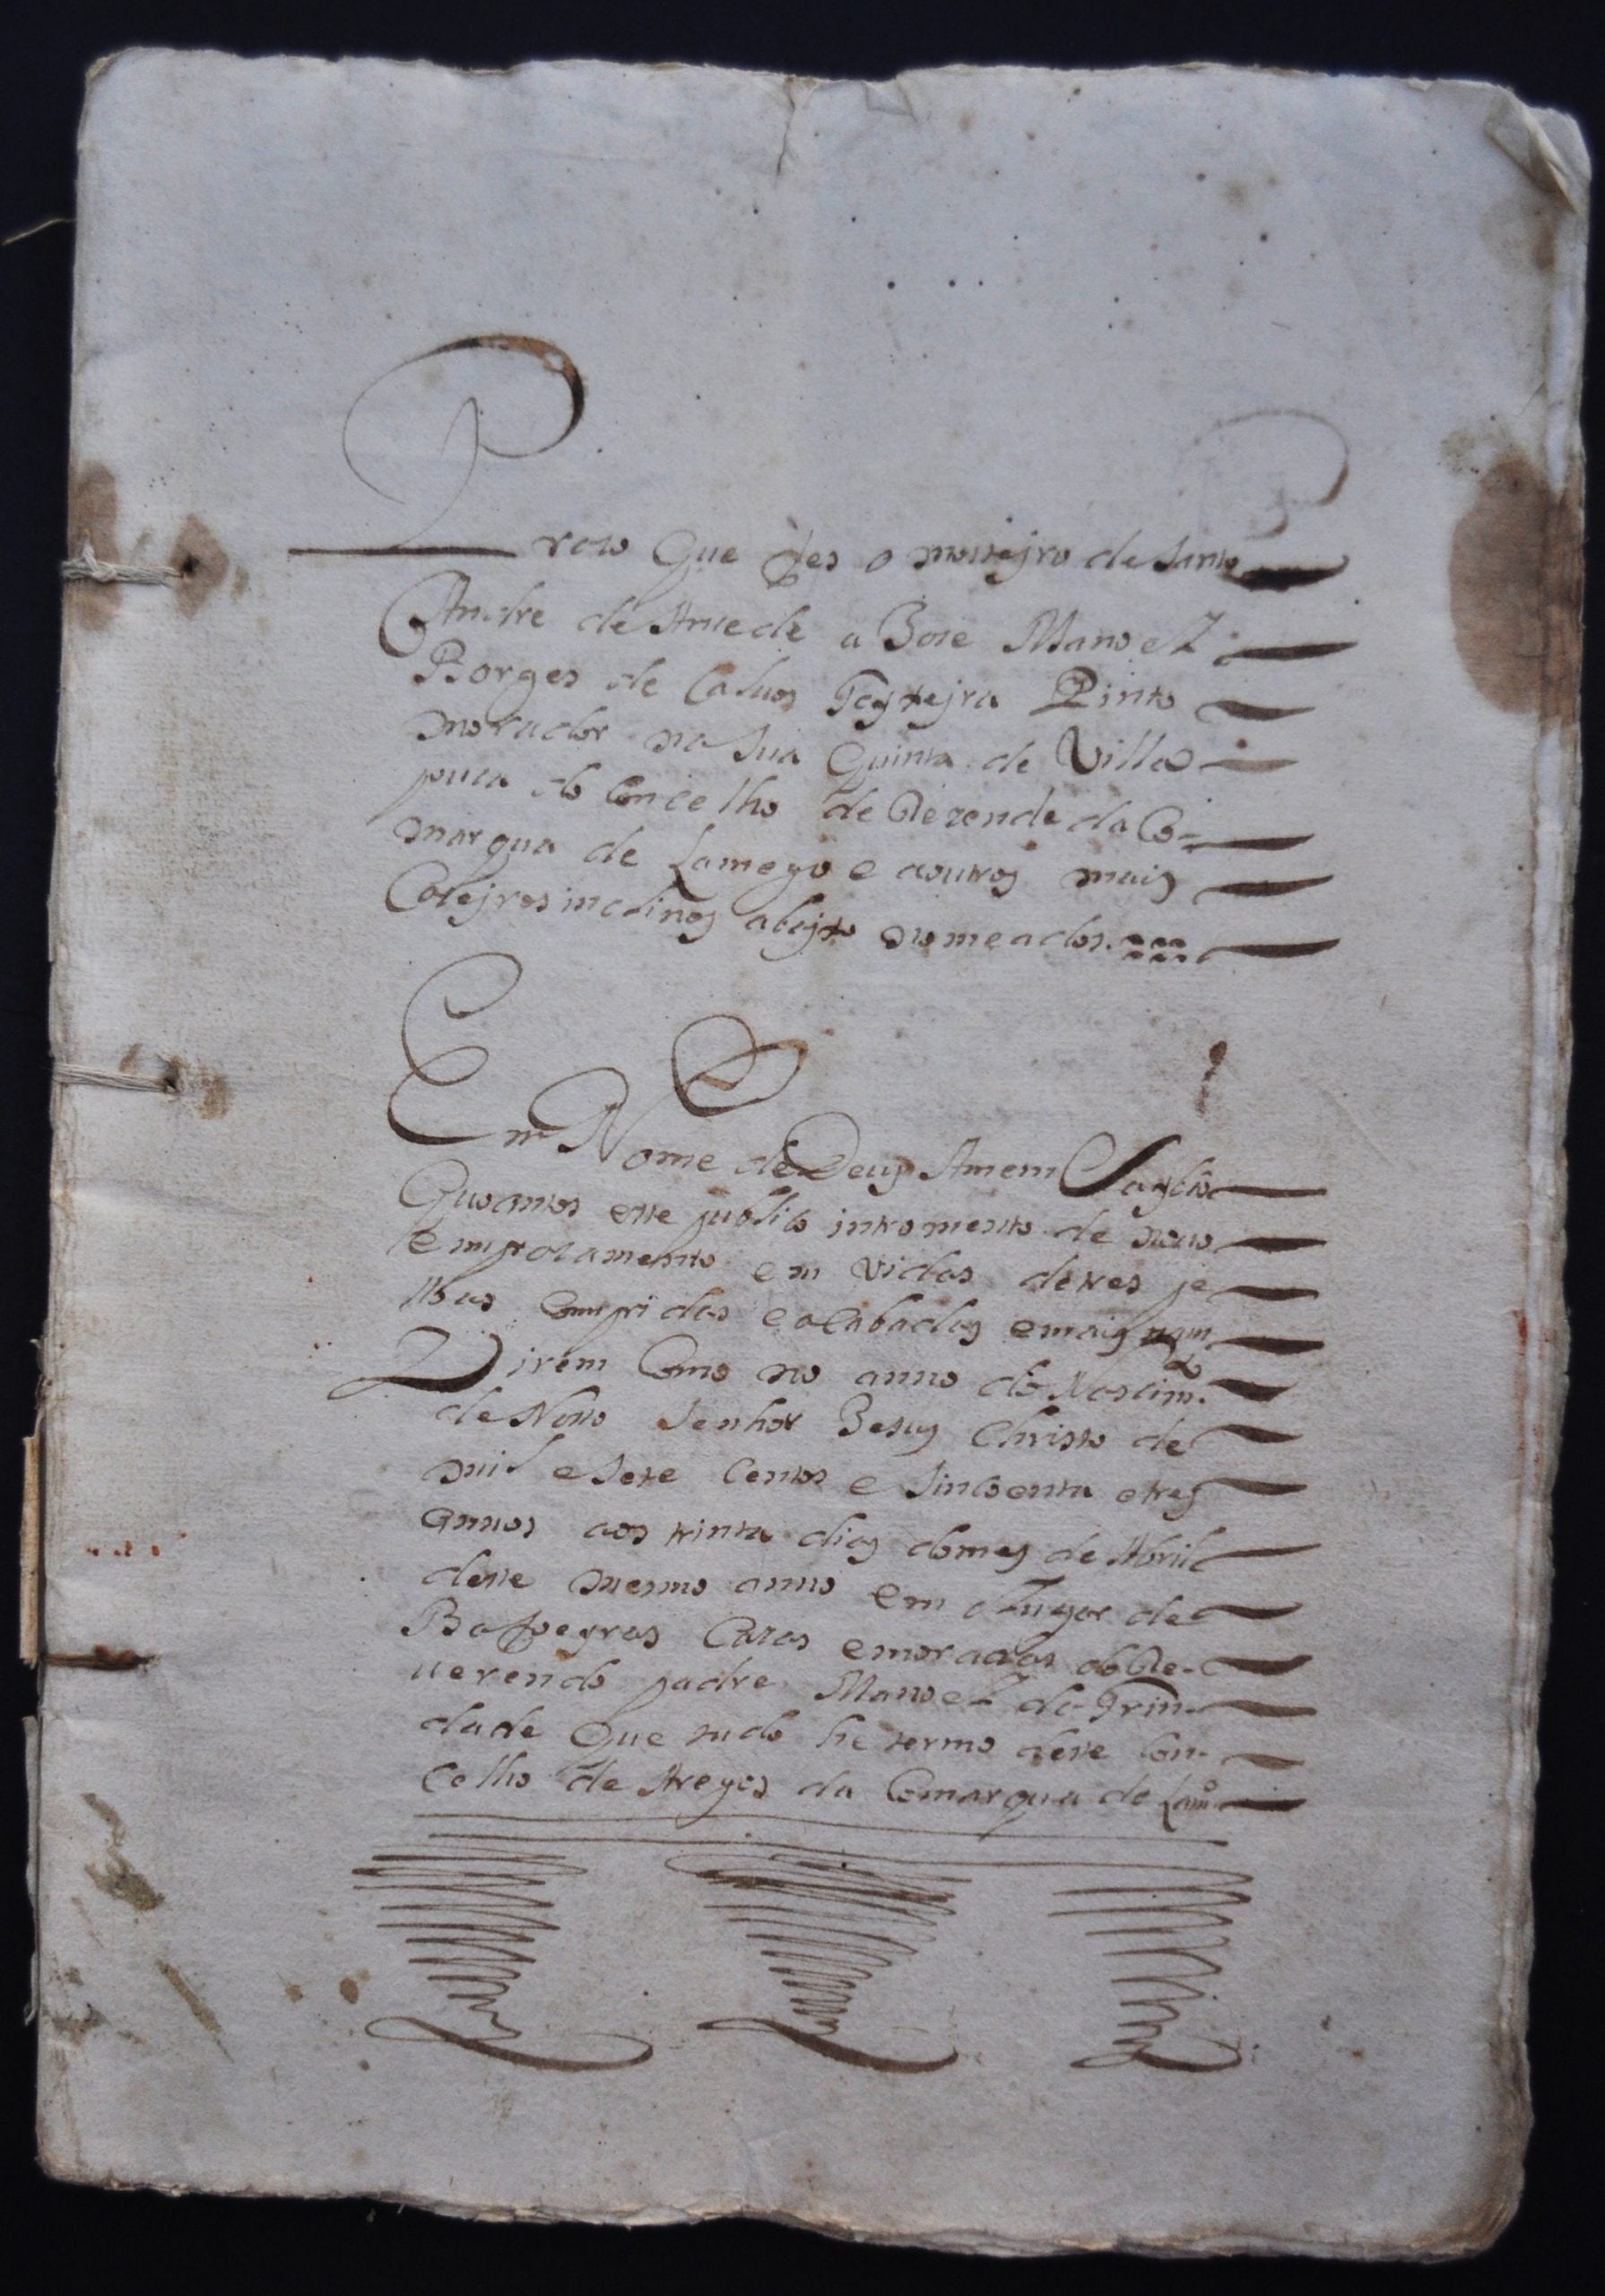 Prazo que fes o mosteyro de Santo
Andre de Ansede a Joze Manoel
Borges de Caluos Teyxejra Pinto
morador na sua Quinta de Villa
pura do Concelho de Rezende da Co-
marqua de Lamego e a outros mais
Cazejros inclinos abajxo nomeados.
Em Nome de Deus Amem Saybão
Quoantos este publico intromento de nouo
emprazamento em vidas de tres pe
ssoas Compridas e acabadas e mais nam
Virem Como no anno do Nascim.to
de Nosso Senhor Jesus Christo de
mil e Sete Centos e Sincoenta e tres
annos aos trinta dias do mes de Abril
deste mesmo anno em o Lugar de
Cazas e moradas do Re-
uerendo padre Manoel da Trin-
dade que tudo he termo deste Con-
celho de Aregos da Comarqua de Lam.o